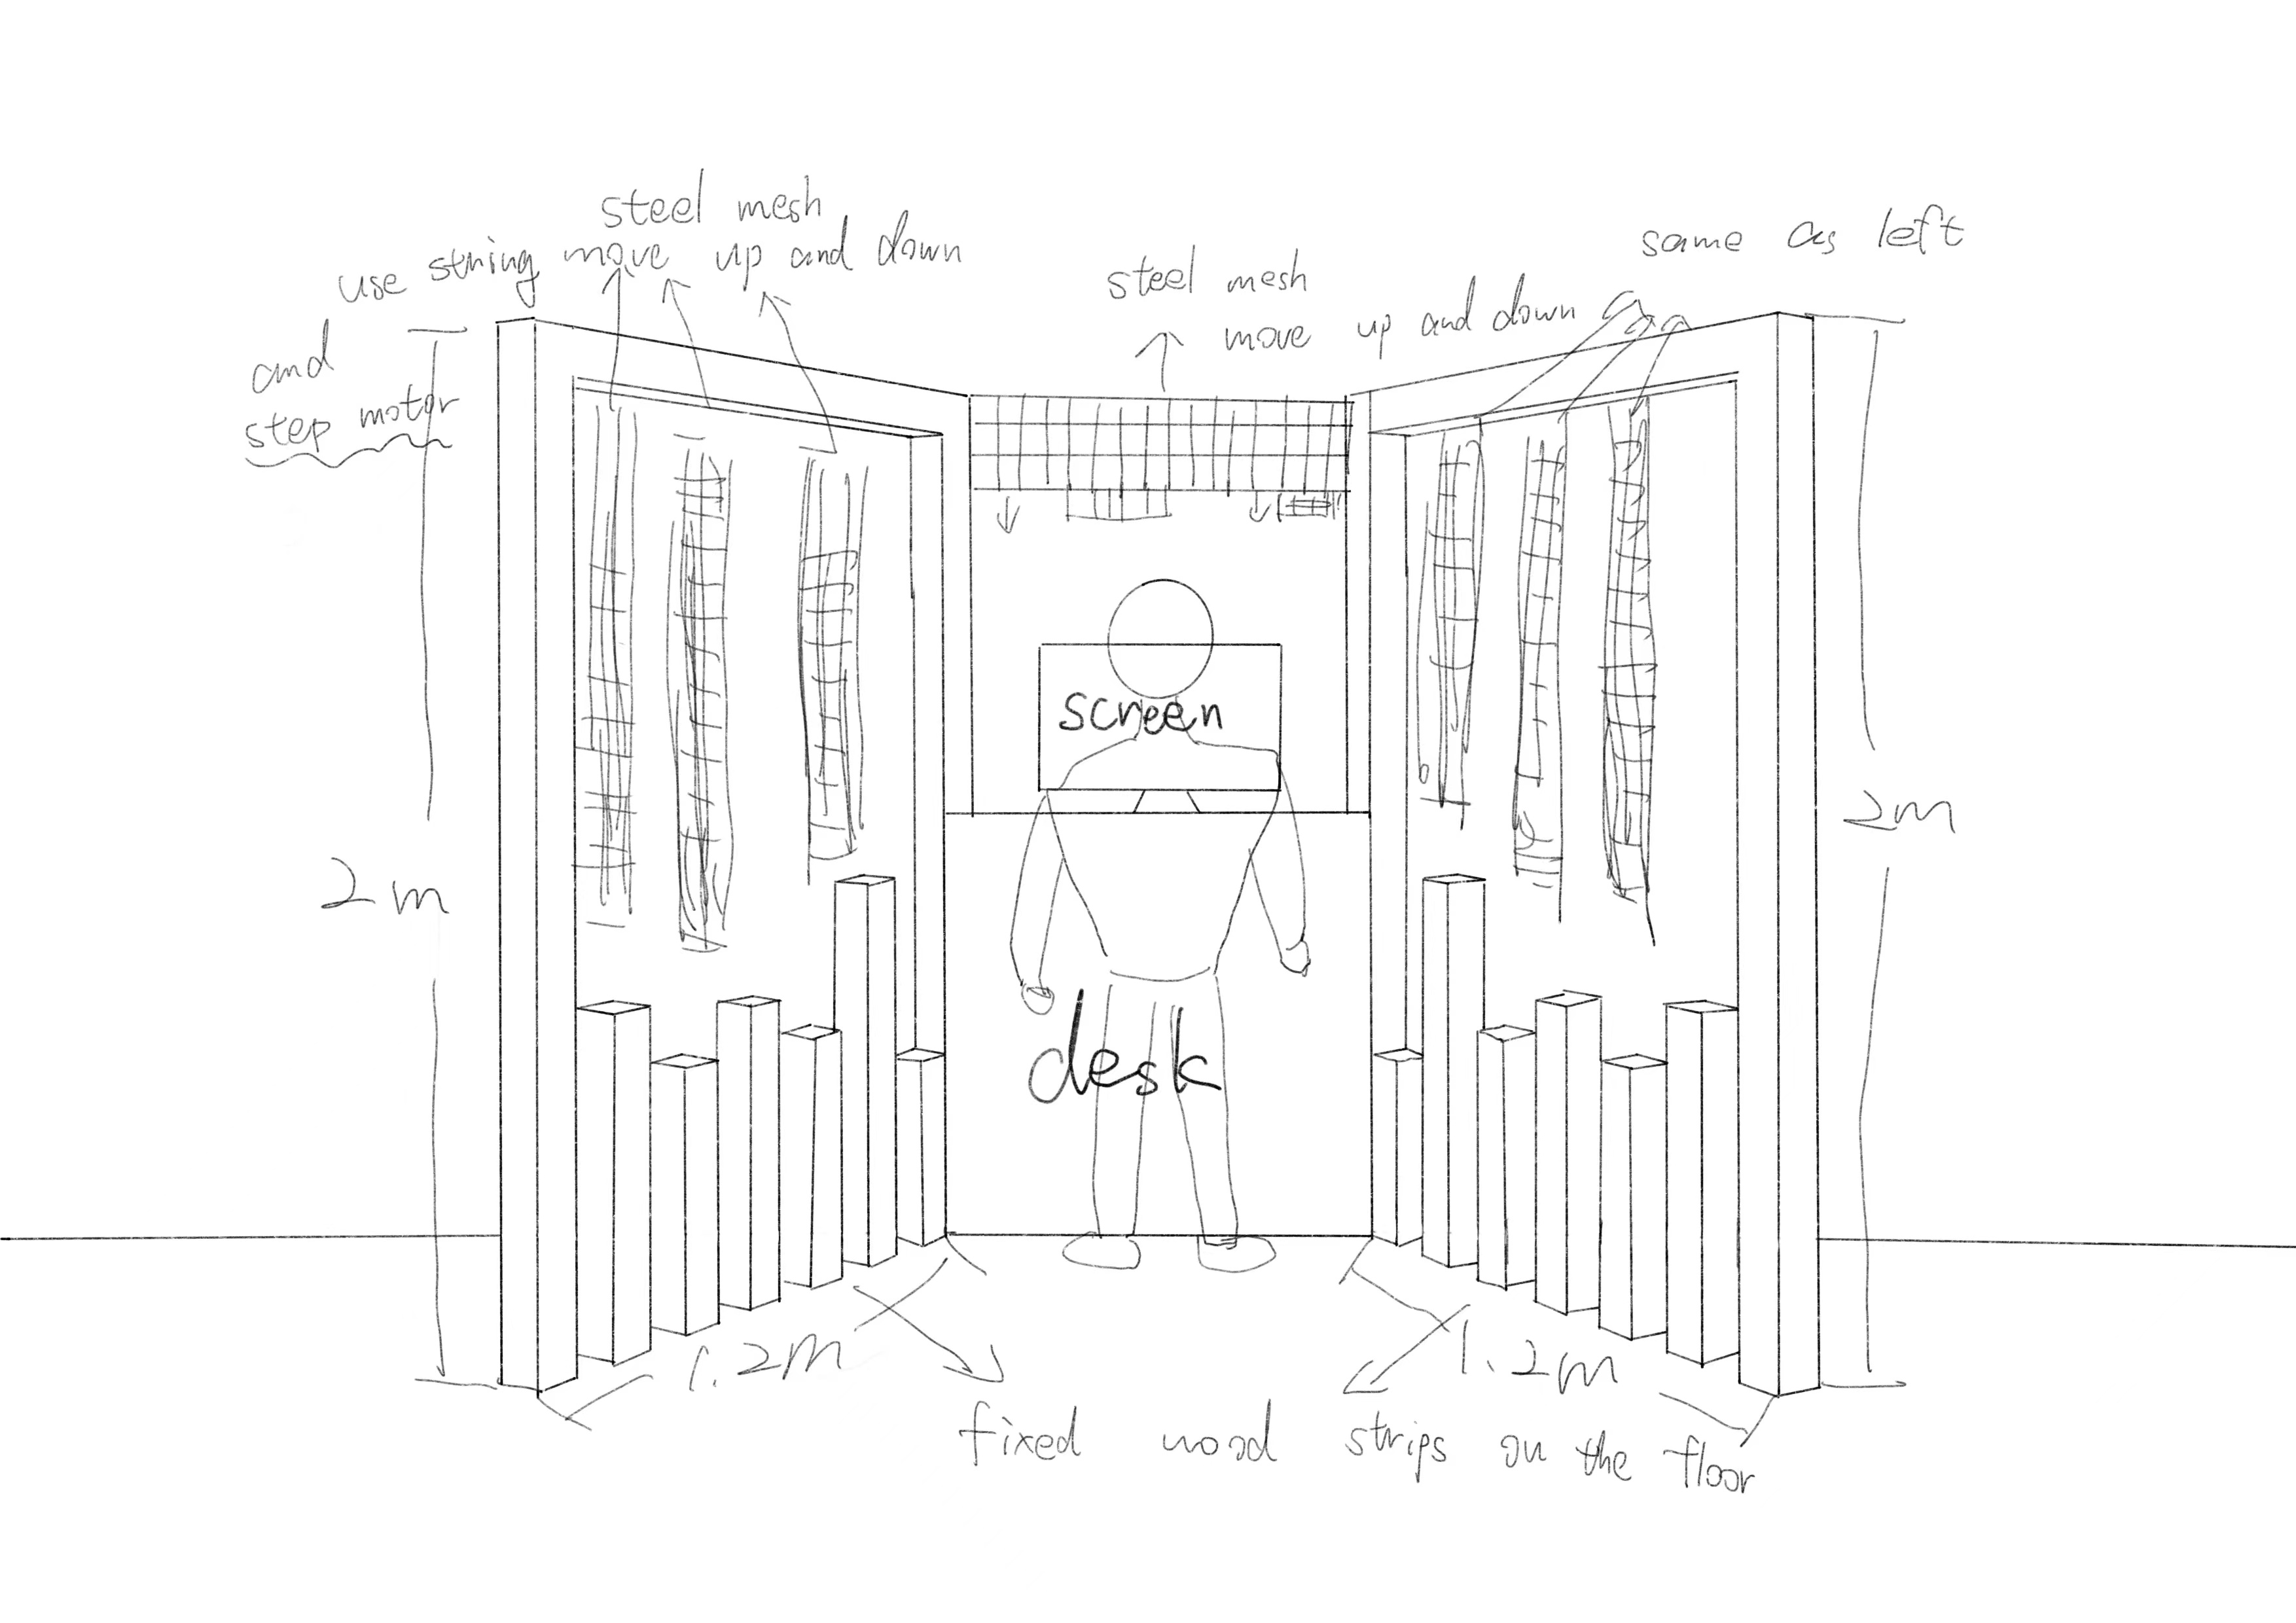 steel mesh
use string move up and down
and
step motor
steel mesh
move up and down
same as left
screen
2m
2m
desk
1.2m
1.2m
fixed wood strips on the floor